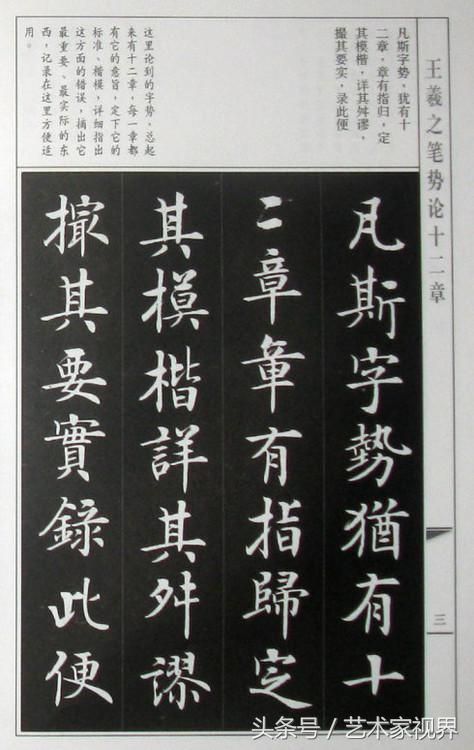 王羲之笔势论十二章
三
凡斯字势，犹有十
二章，章有指归，定
其模楷，详其舛谬，
撮其要实，录此便
这里论到的字势，总起
来有十二章，每一章都
有它的意旨，定下它的
标准、楷模，详细指出
这方面的错误，摘出它
最重要、最实际的东
西，记录在这里方便适
用。
凡斯字勢猶有十
二章章有指歸定
其模楷詳其舛謬
撮其要實錄此便
头条号／艺术家视界